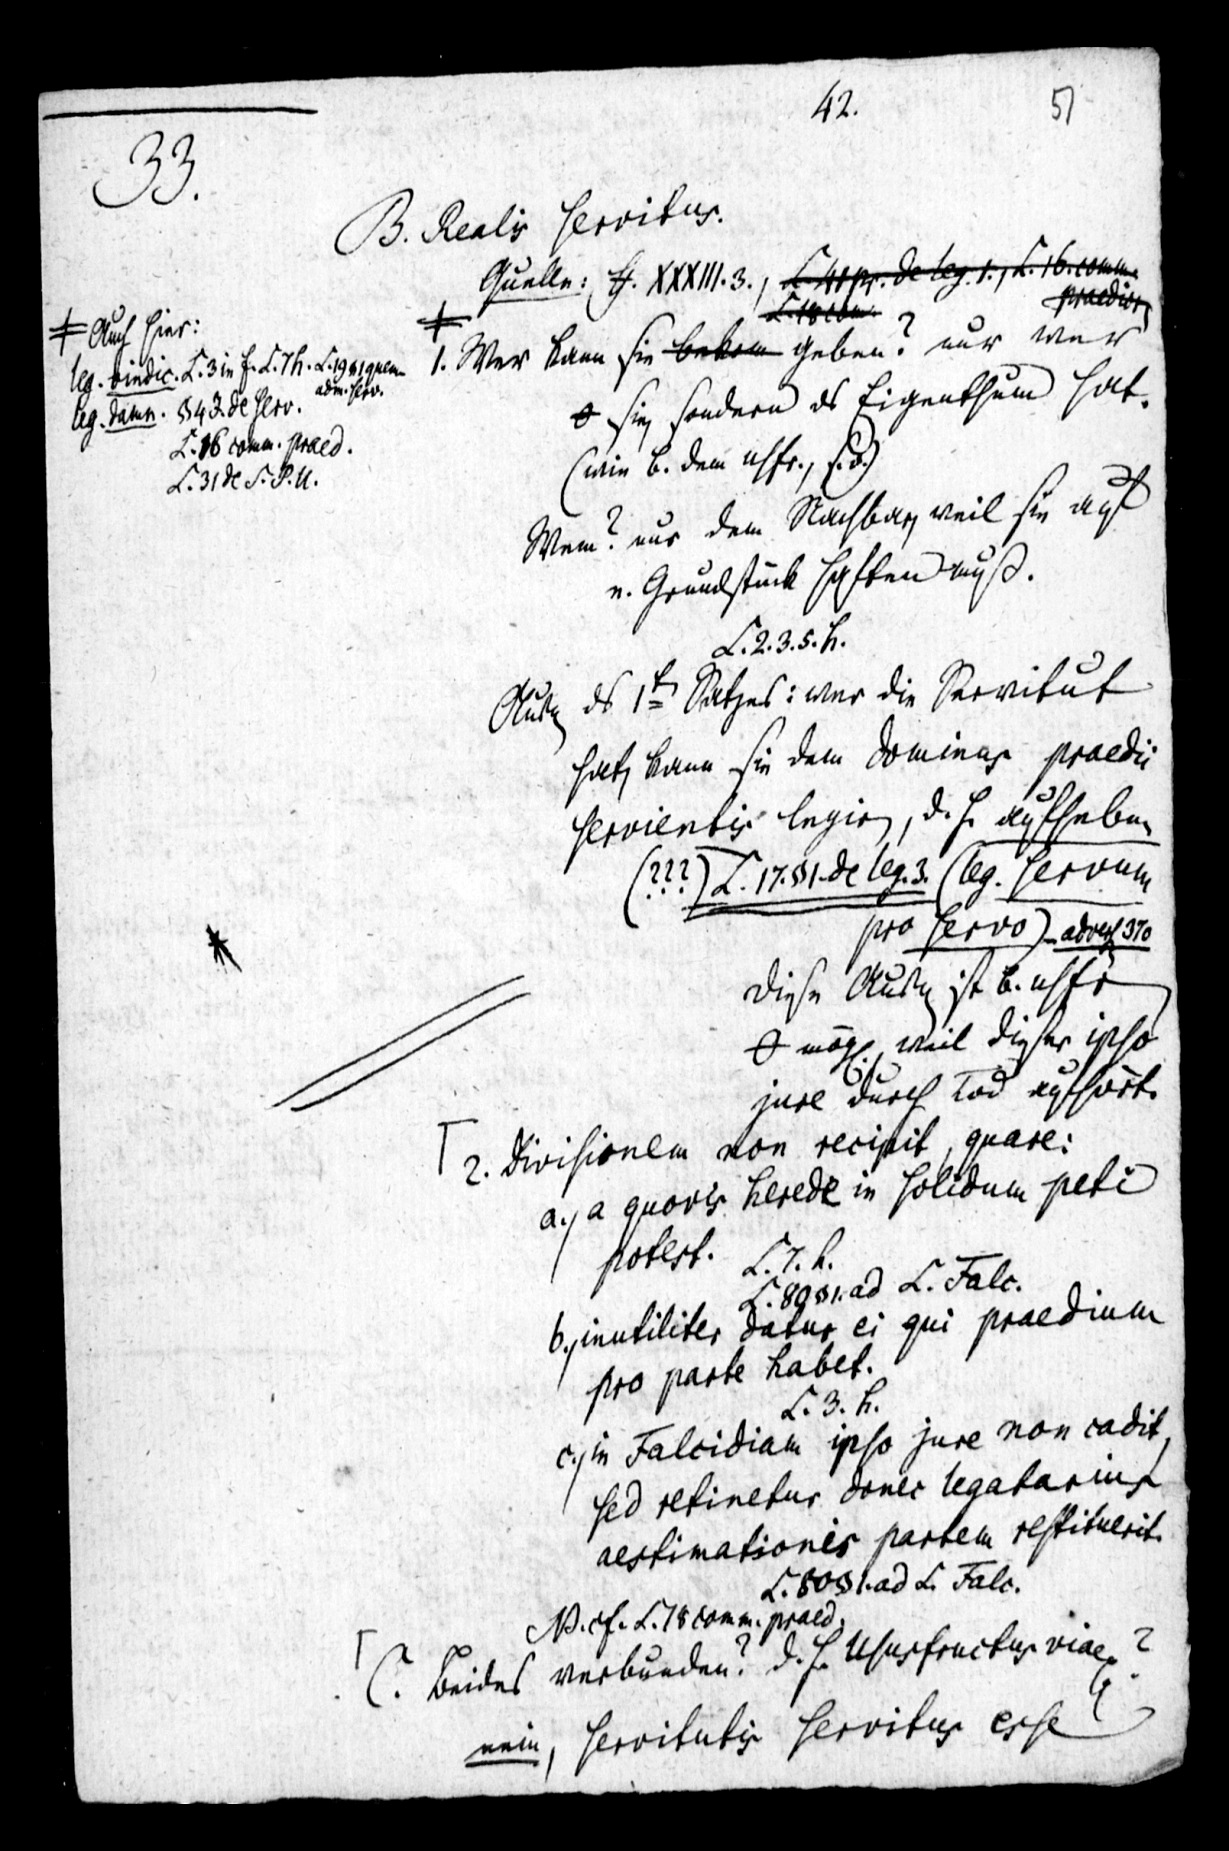 42.
51
33.
B. Realis servitus.
Quelle: tt. XXXIII.3., L. 41 pr. de leg. 1., L. 16. comm.
praedior.
L. 18 com.
‡ Auch hier:
leg. vindic. L. 3 in f. L. 7 h. L. 19 § 1 quem
adm. serv.
leg. damn. § 4 J. de serv.
L. 16 comm. praed.
L. 31 de S. P. U.
‡
1. Wer kann sie bekom geben? nur wer
sie, sondern ds Eigenthum hat.
(wie b. dem usfr., s. o.)
Wem? nur dem Nachbar, weil sie auf
e. Grundstück haften muß.
L. 2. 3. 5. h.
Ausn ds 1t Satzes: wer die Servitut
hat, kann sie dem dominus praedii
servientis legir, d. h. aufheben
(???) L. 17. § 1. de leg. 3. (leg. servum
pro servo) – advers 370
Diese Ausn ist b. usfr
mögl., weil dieser ipso
jure durch Tod aufhört.
2. Divisionem non recipit, quare:
a., a quovis herede in solidum peti
potest.
L. 7. h.
L. 80 § 1. ad L. Falc.
b., inutiliter datur ei qui praedium
pro parte habet.
L. 3. h.
c., in Falcidiam ipso jure non cadit,
sed retinetur donec legatarius
aestimationis partem restituerit.
L. 80 § 1. ad L. Falc.
N. cf. L. 18 comm. praed.
C. Beides verbunden? d. h. Ususfructus viae?
nein, servitutis servitus esse